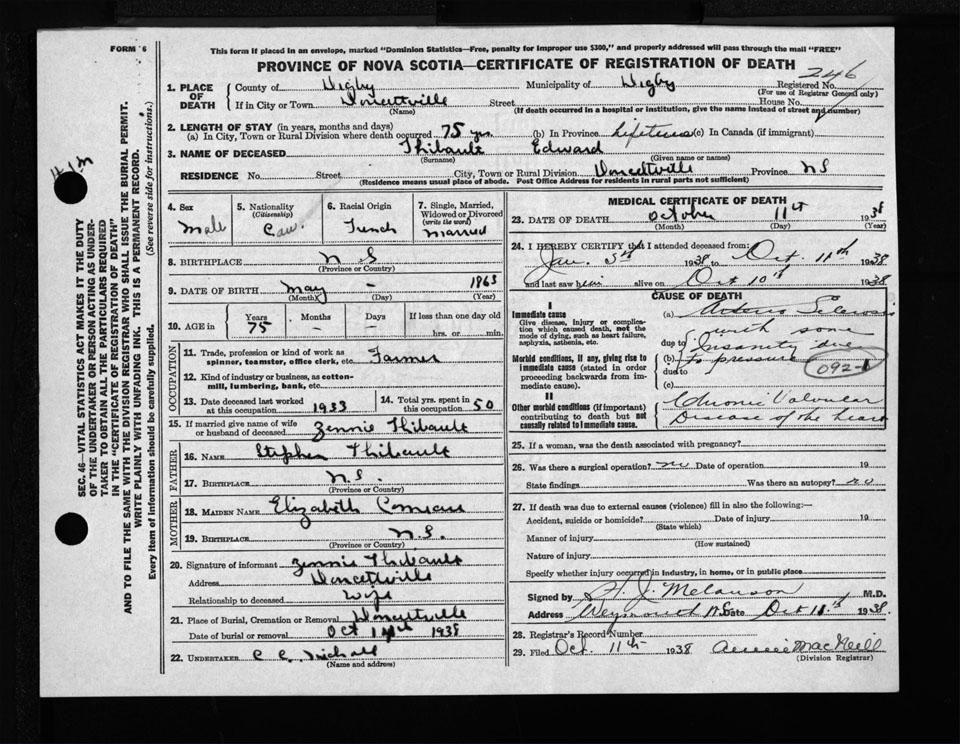 FORM 6
This form if placed in an envelope, marked "Dominion Statistics—Free, penalty for improper use $300," and properly addressed will pass through the mail "FREE"
PROVINCE OF NOVA SCOTIA—CERTIFICATE OF REGISTRATION OF DEATH
246
1. PLACE OF DEATH
County of Digby Municipality of Digby Registered No.
(For use of Registrar General only)
If in City or Town Doucettville Street House No.
(Name) (If death occurred in a hospital or institution, give the name instead of street and number)
2. LENGTH OF STAY (in years, months and days)
(a) In City, Town or Rural Division where death occurred 75 yrs. (b) In Province Lifetime (c) In Canada (if immigrant)
3. NAME OF DECEASED Thibault Edward
(Surname) (Given name or names)
RESIDENCE No. Street City, Town or Rural Division Doucettville Province NS
(Residence means usual place of abode. Post Office Address for residents in rural parts not sufficient)
4. Sex Male
5. Nationality (Citizenship) Can.
6. Racial Origin French
7. Single, Married, Widowed or Divorced (write the word) Married
8. BIRTHPLACE N S
(Province or Country)
9. DATE OF BIRTH May – 1863
(Month) (Day) (Year)
10. AGE in Years 75 Months – Days – If less than one day old hrs. or min.
OCCUPATION
11. Trade, profession or kind of work as spinner, teamster, office clerk, etc. Farmer
12. Kind of industry or business, as cotton-mill, lumbering, bank, etc.
13. Date deceased last worked at this occupation 1933
14. Total yrs. spent in this occupation 50
15. If married give name of wife or husband of deceased Zennie Thibault
FATHER
16. NAME Stephen Thibault
17. BIRTHPLACE N.S.
(Province or Country)
MOTHER
18. MAIDEN NAME Elizabeth Comeau
19. BIRTHPLACE N.S.
(Province or Country)
20. Signature of informant Zennie Thibault
Address Doucettville
Relationship to deceased Wife
21. Place of Burial, Cremation or Removal Doucettville
Date of burial or removal Oct 14th 1938
22. UNDERTAKER C C
(Name and address)
MEDICAL CERTIFICATE OF DEATH
23. DATE OF DEATH October 11th 1938
(Month) (Day) (Year)
24. I HEREBY CERTIFY that I attended deceased from:
Jan. 5th 1938 to Oct. 11th 1938
and last saw him alive on Oct 10th 1938
CAUSE OF DEATH
I
Immediate cause
Give disease, injury or complication which caused death, not the mode of dying, such as heart failure, asphyxia, asthenia, etc.
(a) Arterio Sclerosis
with some
due to Insanity due
Morbid conditions, if any, giving rise to immediate cause (stated in order proceeding backwards from immediate cause).
(b) to pressure
due to
092-1
(c)
II
Other morbid conditions (if important) contributing to death but not causally related to immediate cause.
Chronic Valvular
Disease of the heart
25. If a woman, was the death associated with pregnancy?
26. Was there a surgical operation? no Date of operation 19
State findings Was there an autopsy? no
27. If death was due to external causes (violence) fill in also the following:—
Accident, suicide or homicide? Date of injury 19
(State which)
Manner of injury
(How sustained)
Nature of injury
Specify whether injury occurred in industry, in home, or in public place
Signed by H. J. Melanson M.D.
Address Weymouth N.S. Date Oct 11th 1938.
28. Registrar's Record Number
29. Filed Oct. 11th 1938 Annie MacNeill
(Division Registrar)
SEC. 46—VITAL STATISTICS ACT MAKES IT THE DUTY
OF THE UNDERTAKER OR PERSON ACTING AS UNDER-
TAKER TO OBTAIN ALL THE PARTICULARS REQUIRED
IN THE "CERTIFICATE OF REGISTRATION OF DEATH"
AND TO FILE THE SAME WITH THE DIVISION REGISTRAR WHO SHALL ISSUE THE BURIAL PERMIT.
WRITE PLAINLY WITH UNFADING INK. THIS IS A PERMANENT RECORD.
Every item of information should be carefully supplied. (See reverse side for instructions.)